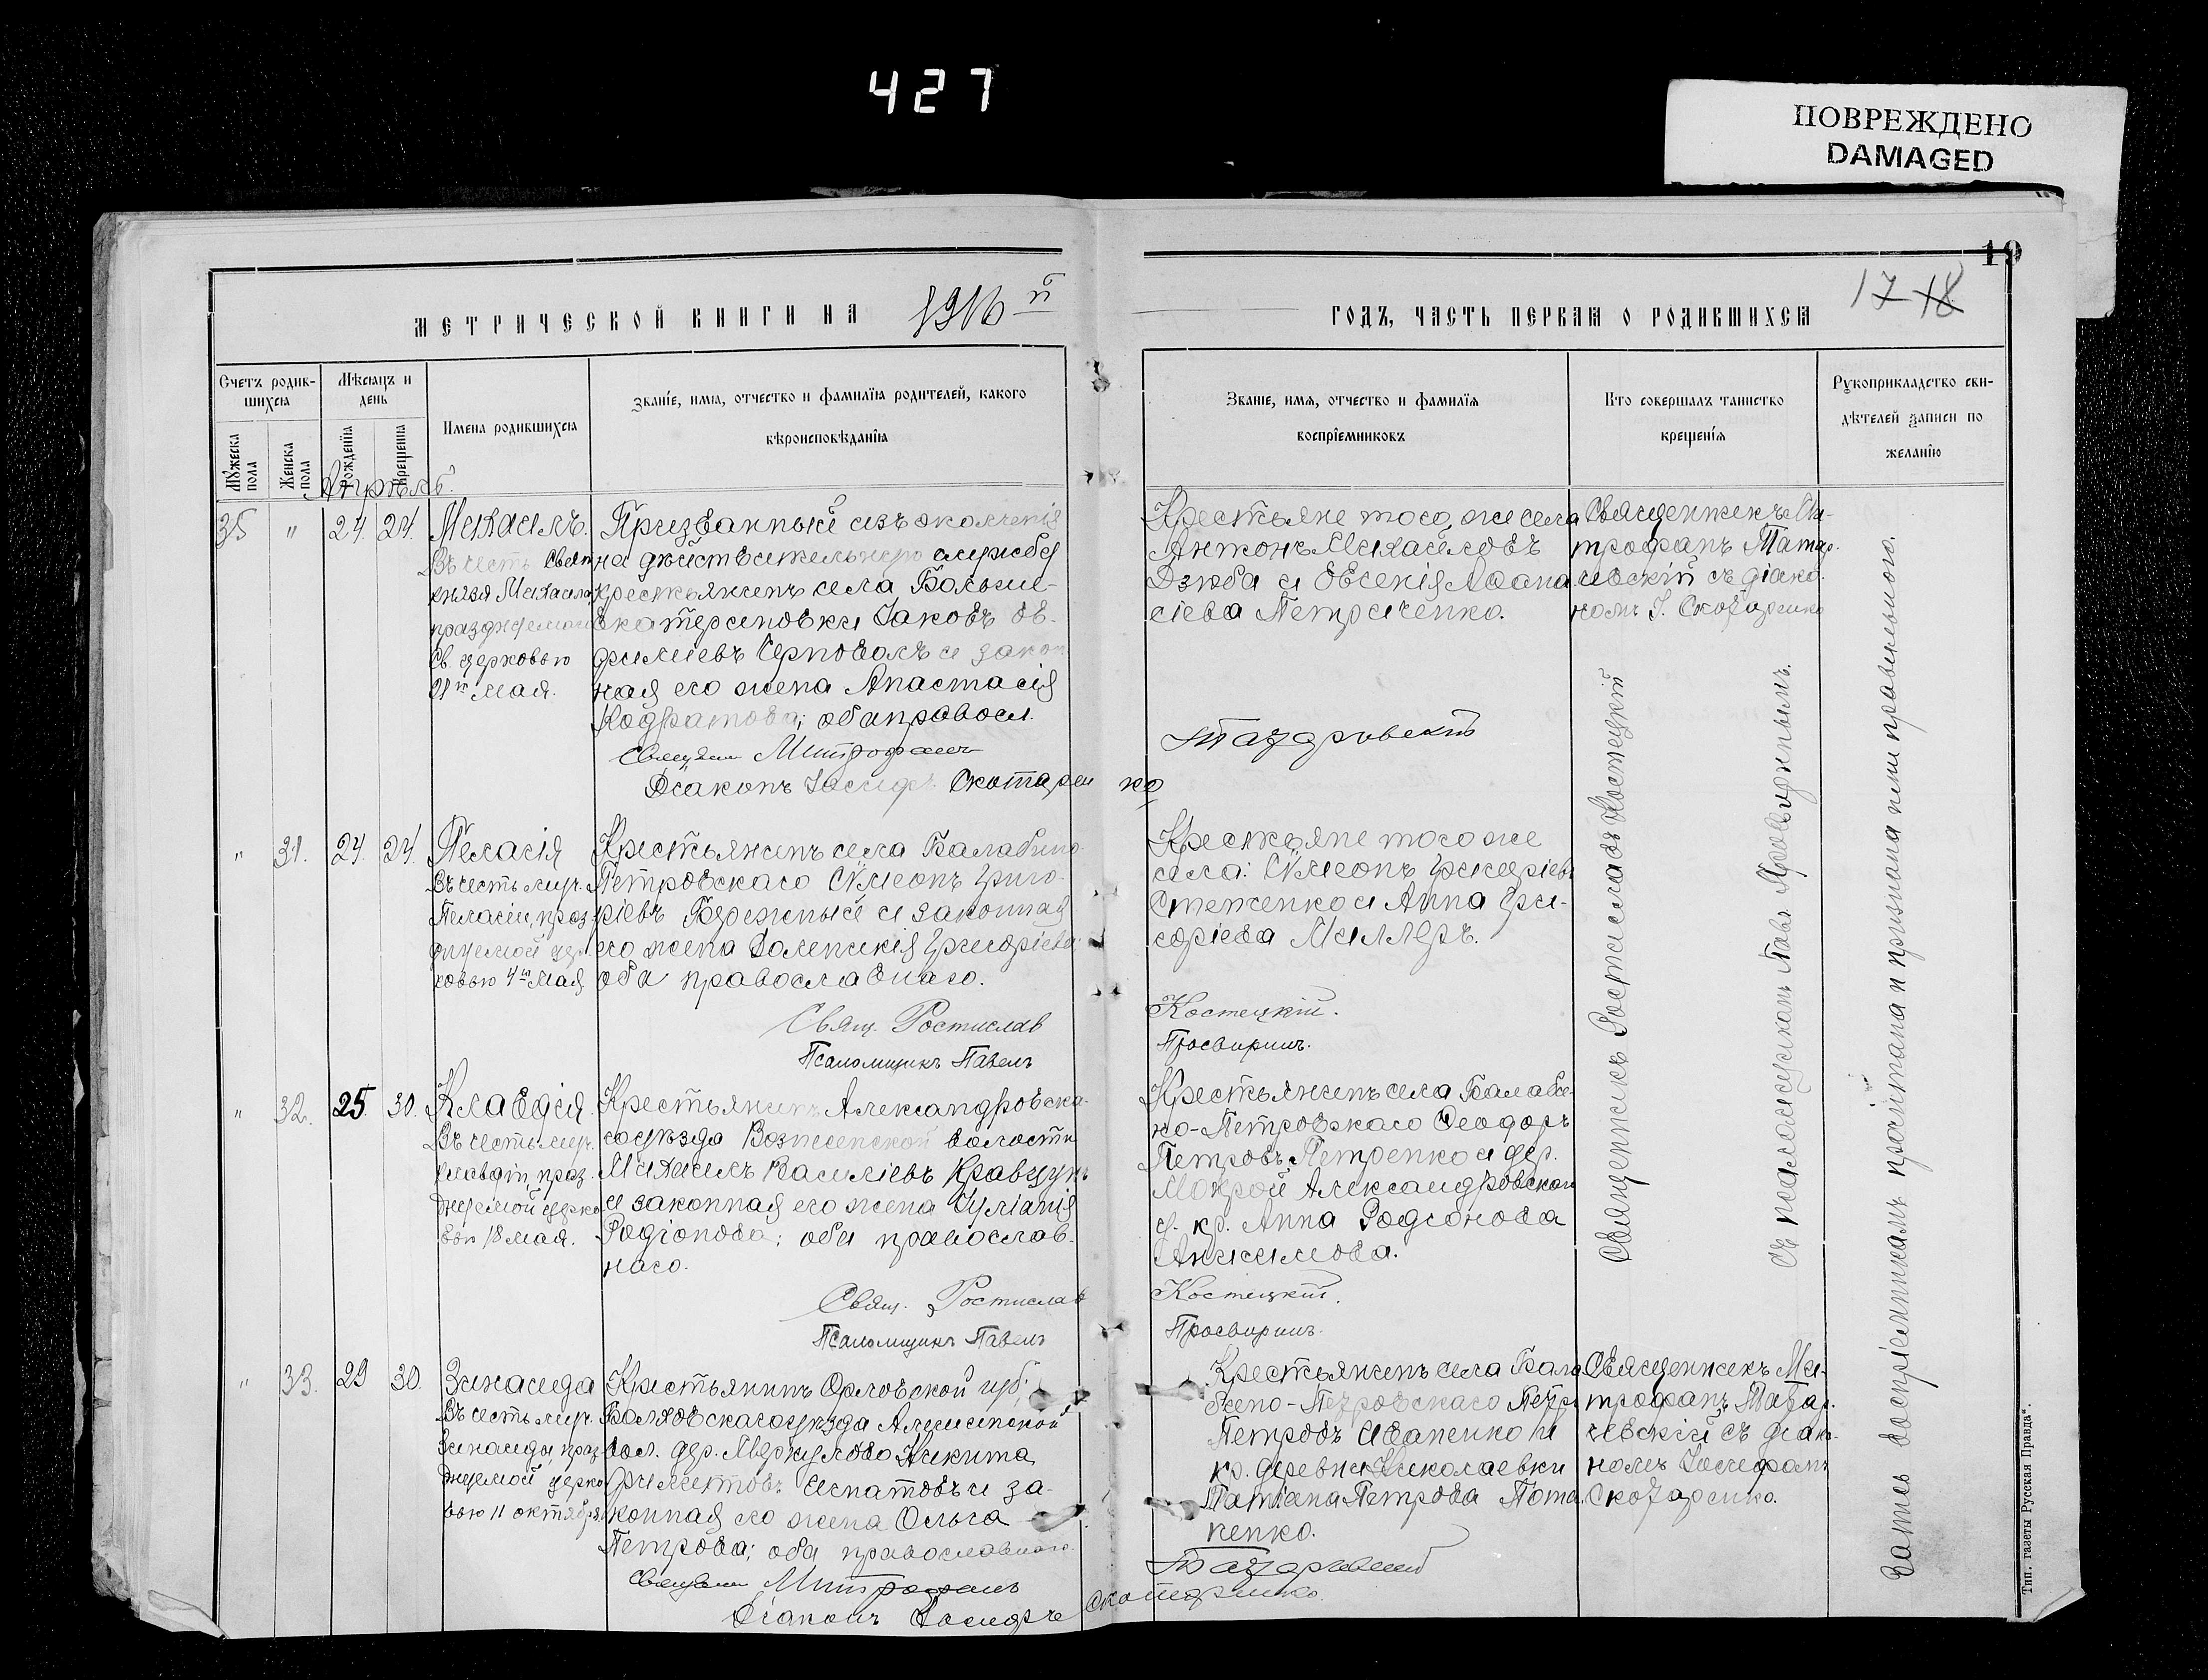 427
ПОВРЕЖДЕНО
DAMAGED
19
17 18
МЕТРИЧЕСКОЙ КНИГИ НА 1916 й
ГОДЪ, ЧАСТЬ ПЕРВАЯ О РОДИВШИХСЯ
Счетъ родив-
шихся
Мужеска пола
Женска пола
Мѣсяцъ и
день
Рожденія
Крещенія
Имена родившихся
Званіе, имя, отчество и фамилія родителей, какого
вѣроисповѣданія
Званіе, имя, отчество и фамилія
воспріемниковъ
Кто совершалъ таинство
крещенія
Рукоприкладство сви-
дѣтелей записи по
желанію
Апрѣль.
35 " 24. 24.
Михаилъ.
Въ честь Свят
князя Михаила
празднуемаго
Св. церковью
21го мая.
Призванный изъ ополченія
на дѣйствительную службу
крестьянинъ села Больше-
екатериновки Іаковъ Ев-
фиміевъ Черноволъ и закон
ная его жена Анастасія
Кодратова; оба правосл.
Священ Митрофанъ
Діаконъ Іосифъ Скотарен
Крестьяне того же села
Антонъ Михаиловъ
Дзюба и Евгенія Аѳана
сіева Петриченко.
Татаровскій
ко
Священникъ Ми-
трофанъ Татар.
евскій съ діако
номъ І. Скотаренко
" 31. 24. 24.
Пелагія
Въ честь муч.
Пелагіи, праз
днуемой цер.
ковью 4го мая
Крестьянинъ села Балабино
Петровскаго Сѵмеонъ Григо-
ріевъ Бережный и законная
его жена Доминикія Григоріева
оба православнаго.
Свящ. Ростислав
Псаломщикъ Павелъ
Крестьяне того же
села: Сѵмеонъ Григоріевъ
Стеценко и Анна Гри-
горіева Миллеръ.
Костецкій.
Просвиринъ.
Священникъ Ростиславъ Костецкій
Съ псаломщикомъ Пав. Просвиринымъ.
" 32. 25. 30.
Клавдія.
Въ честь муч.
Клавдіи, праз
днуемой церко
вью 18 мая.
Крестьянинъ Александровска-
го уѣзда Вознесенской волости
Михаилъ Василіевъ Кравцунъ
и законная его жена Іуліанія
Родіонова; оба православ-
наго.
Свящ. Ростислав
Псаломщикъ Павелъ
Крестьянинъ села Балаби-
но-Петровскаго Ѳеодоръ
Петровъ Петренко и дер.
Мокрой Александровскаго
у. кр. Анна Родіонова
Анисимова.
Костецкій.
Просвиринъ.
" 33. 29 30.
Зинаида
Въ честь муч.
Зинаиды, праз
днуемой церко
вью 11 октября.
Крестьянинъ Орловской губ.
Болховскаго уѣзда
вол. дер. Меркулово Никита
Игнатовъ и за-
конная его жена Ольга
Петрова; оба православнаго.
Священ Митрофанъ
Діаконъ Іосифъ
Крестьянинъ села Бала
бино-Петровскаго Петръ
Петровъ Иваненко и
кр. деревни Николаевки
Татіана Петрова Пота
пенко.
Татаровскій
Скотаренко.
Священникъ Ми-
трофанъ Татар.
евскій съ діако-
номъ Іосифомъ
Скотаренко.
Запись воспріемникамъ прочитана и признана ими правильною.
Тип. газеты Русская Правда“.